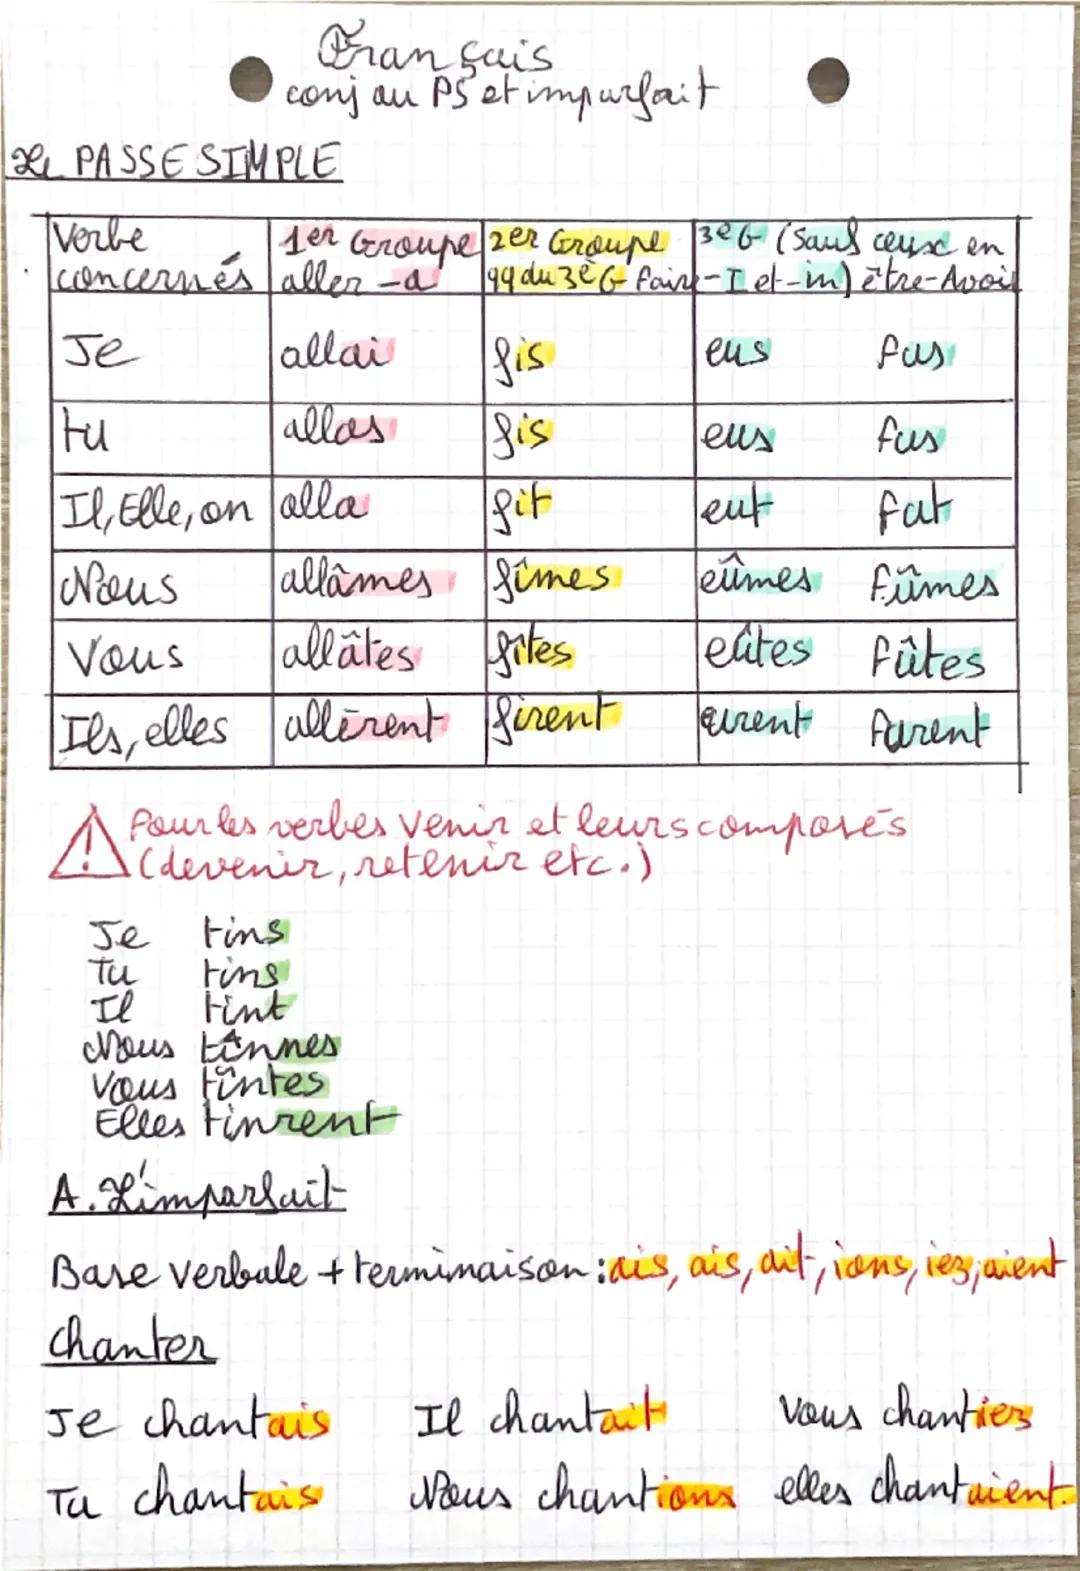 Français
conj au PS et imparfait
Le PASSE SIMPLE
Verbe concernés | 1er Groupe aller -a | 2er Groupe qq du 3è G Faire | 3e G (Sauf ceux en -I et -in) être-Avoir
Je | allai | fis | eus | fus
tu | allas | fis | eus | fus
Il, Elle, on | alla | fit | eut | fut
Nous | allâmes | fîmes | eûmes | fûmes
Vous | allâtes | fîtes | eûtes | fûtes
Ils, elles | allèrent | firent | eurent | furent
! Pour les verbes Venir et leurs composés
(devenir, retenir etc.)
Je tins
Tu tins
Il tint
Nous tînmes
Vous tîntes
Elles tinrent
A. L'imparfait
Base verbale + terminaison : ais, ais, ait, ions, iez, aient
Chanter
Je chantais Il chantait Vous chantiez
Tu chantais Nous chantions elles chantaient.